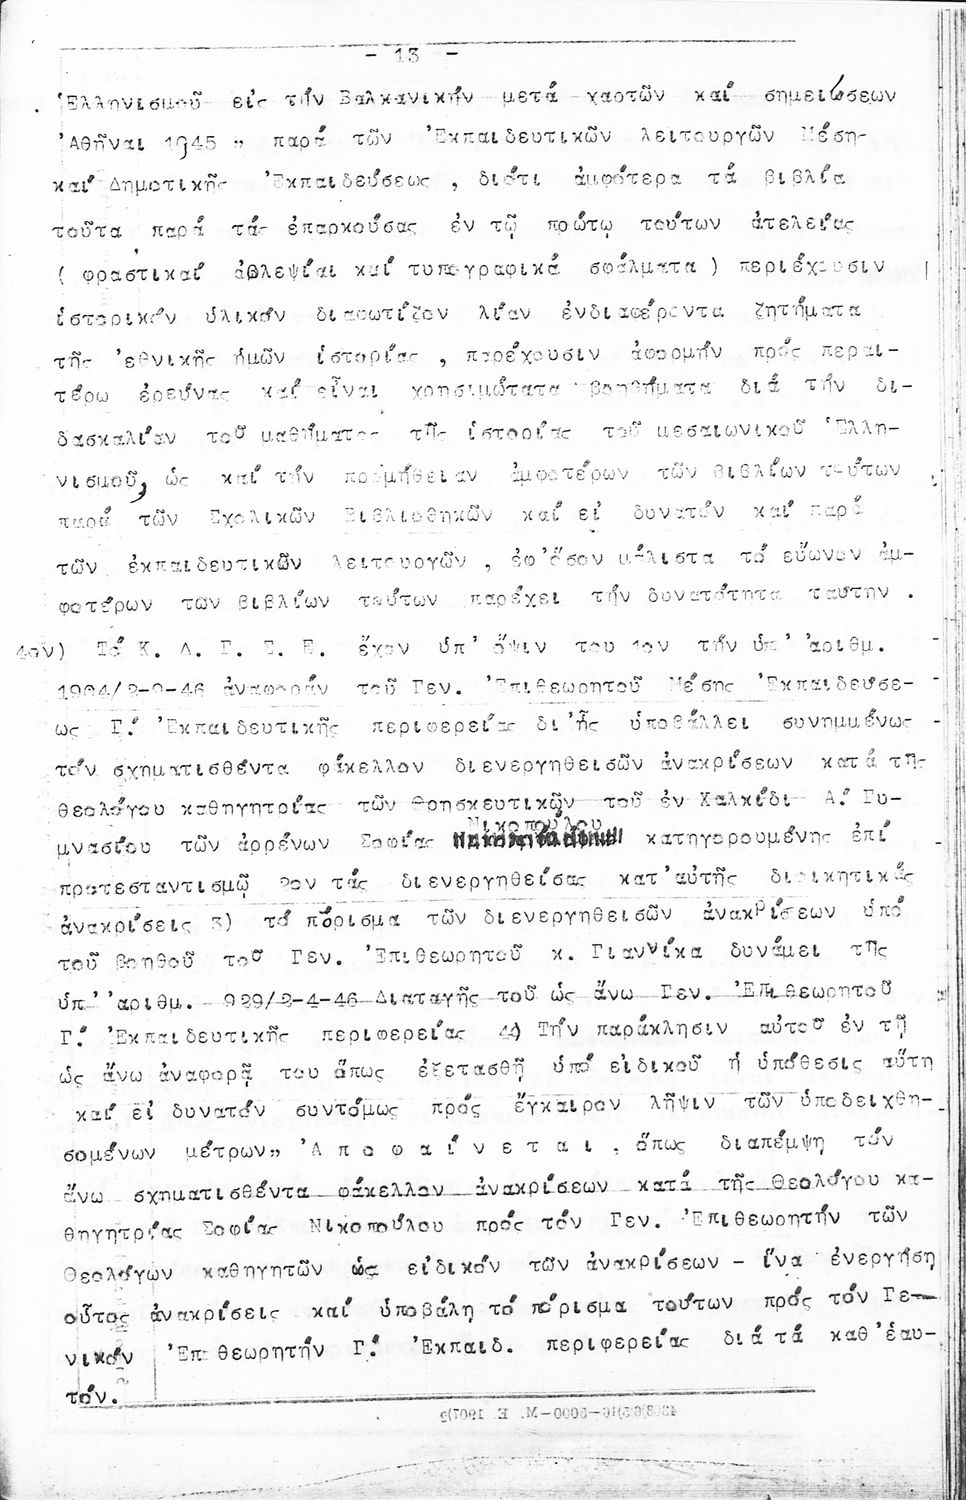 - 13 -
Ἑλληνισμοῦ εἰς τήν Βαλκανικήν μετά χαρτῶν καί σημειώσεων
Ἀθῆναι 1945 " παρά τῶν Ἐκπαιδευτικῶν λειτουργῶν Μέση-
καί Δημοτικῆς Ἐκπαιδεύσεως , διότι ἀμφότερα τά βιβλία
τοῦτα παρά τάς ἐπαρκούσας ἐν τῷ πρώτῳ τούτων ἀτελείας
( φραστικαί ἀβλεψίαι καί τυπογραφικά σφάλματα ) περιέχουσιν
ἱστορικόν ὑλικόν διαφωτίζον λίαν ἐνδιαφέροντα ζητήματα
τῆς ἐθνικῆς ἡμῶν ἱστορίας , παρέχουσιν ἀφορμήν πρός περαι-
τέρω ἐρεύνας καί εἶναι χρησιμώτατα βοηθήματα διά τήν δι-
δασκαλίαν τοῦ μαθήματος τῆς ἱστορίας τοῦ μεσαιωνικοῦ Ἑλλη-
νισμοῦ, ὡς καί τήν προμήθειαν ἀμφοτέρων τῶν βιβλίων τούτων
παρά τῶν Σχολικῶν Βιβλιοθηκῶν καί εἰ δυνατόν καί παρά
τῶν ἐκπαιδευτικῶν λειτουργῶν , ἐφ'ὅσον μάλιστα τό εὔωνον ἀμ-
φοτέρων τῶν βιβλίων τούτων παρέχει τήν δυνατότητα ταύτην .
4ον) Τό Κ. Δ. Γ. Σ. Ε. ἔχον ὑπ' ὄψιν του 1ον τήν ὑπ' ἀριθμ.
1904/2-9-46 ἀναφοράν τοῦ Γεν. Ἐπιθεωρητοῦ Μέσης Ἐκπαιδεύσε-
ως Γ! Ἐκπαιδευτικῆς περιφερείας δι'ἧς ὑποβάλλει συνημμένως
τόν σχηματισθέντα φάκελλον διενεργηθεισῶν ἀνακρίσεων κατά τῆς
θεολόγου καθηγητρίας τῶν θρησκευτικῶν τοῦ ἐν Χαλκίδι Α! Γυ-
μνασίου τῶν ἀρρένων Σοφίας Νικοπούλου κατηγορουμένης ἐπί
προτεσταντισμῷ 2ον τάς διενεργηθείσας κατ'αὐτῆς διοικητικάς
ἀνακρίσεις 3) τό πόρισμα τῶν διενεργηθεισῶν ἀνακρίσεων ὑπό
τοῦ βοηθοῦ τοῦ Γεν. Ἐπιθεωρητοῦ κ. Γιαννίκα δυνάμει τῆς
ὑπ' ἀριθμ. 929/2-4-46 Διαταγῆς τοῦ ὡς ἄνω Γεν. Ἐπιθεωρητοῦ
Γ! Ἐκπαιδευτικῆς περιφερείας 4) Τήν παράκλησιν αὐτοῦ ἐν τῇ
ὡς ἄνω ἀναφορᾷ του ὅπως ἐξετασθῇ ὑπό εἰδικοῦ ἡ ὑπόθεσις αὕτη
καί εἰ δυνατόν συντόμως πρός ἔγκαιρον λῆψιν τῶν ὑποδειχθη-
σομένων μέτρων" Ἀ π ο φ α ί ν ε τ α ι , ὅπως διαπέμψη τόν
ἄνω σχηματισθέντα φάκελλον ἀνακρίσεων κατά τῆς θεολόγου κα-
θηγητρίας Σοφίας Νικοπούλου πρός τόν Γεν. Ἐπιθεωρητήν τῶν
Θεολόγων καθηγητῶν ὡς εἰδικόν τῶν ἀνακρίσεων - ἵνα ἐνεργήση
οὗτος ἀνακρίσεις καί ὑποβάλη τό πόρισμα τούτων πρός τόν Γε-
νικόν Ἐπιθεωρητήν Γ! Ἐκπαιδ. περιφερείας διά τά καθ'ἑαυ-
τόν.